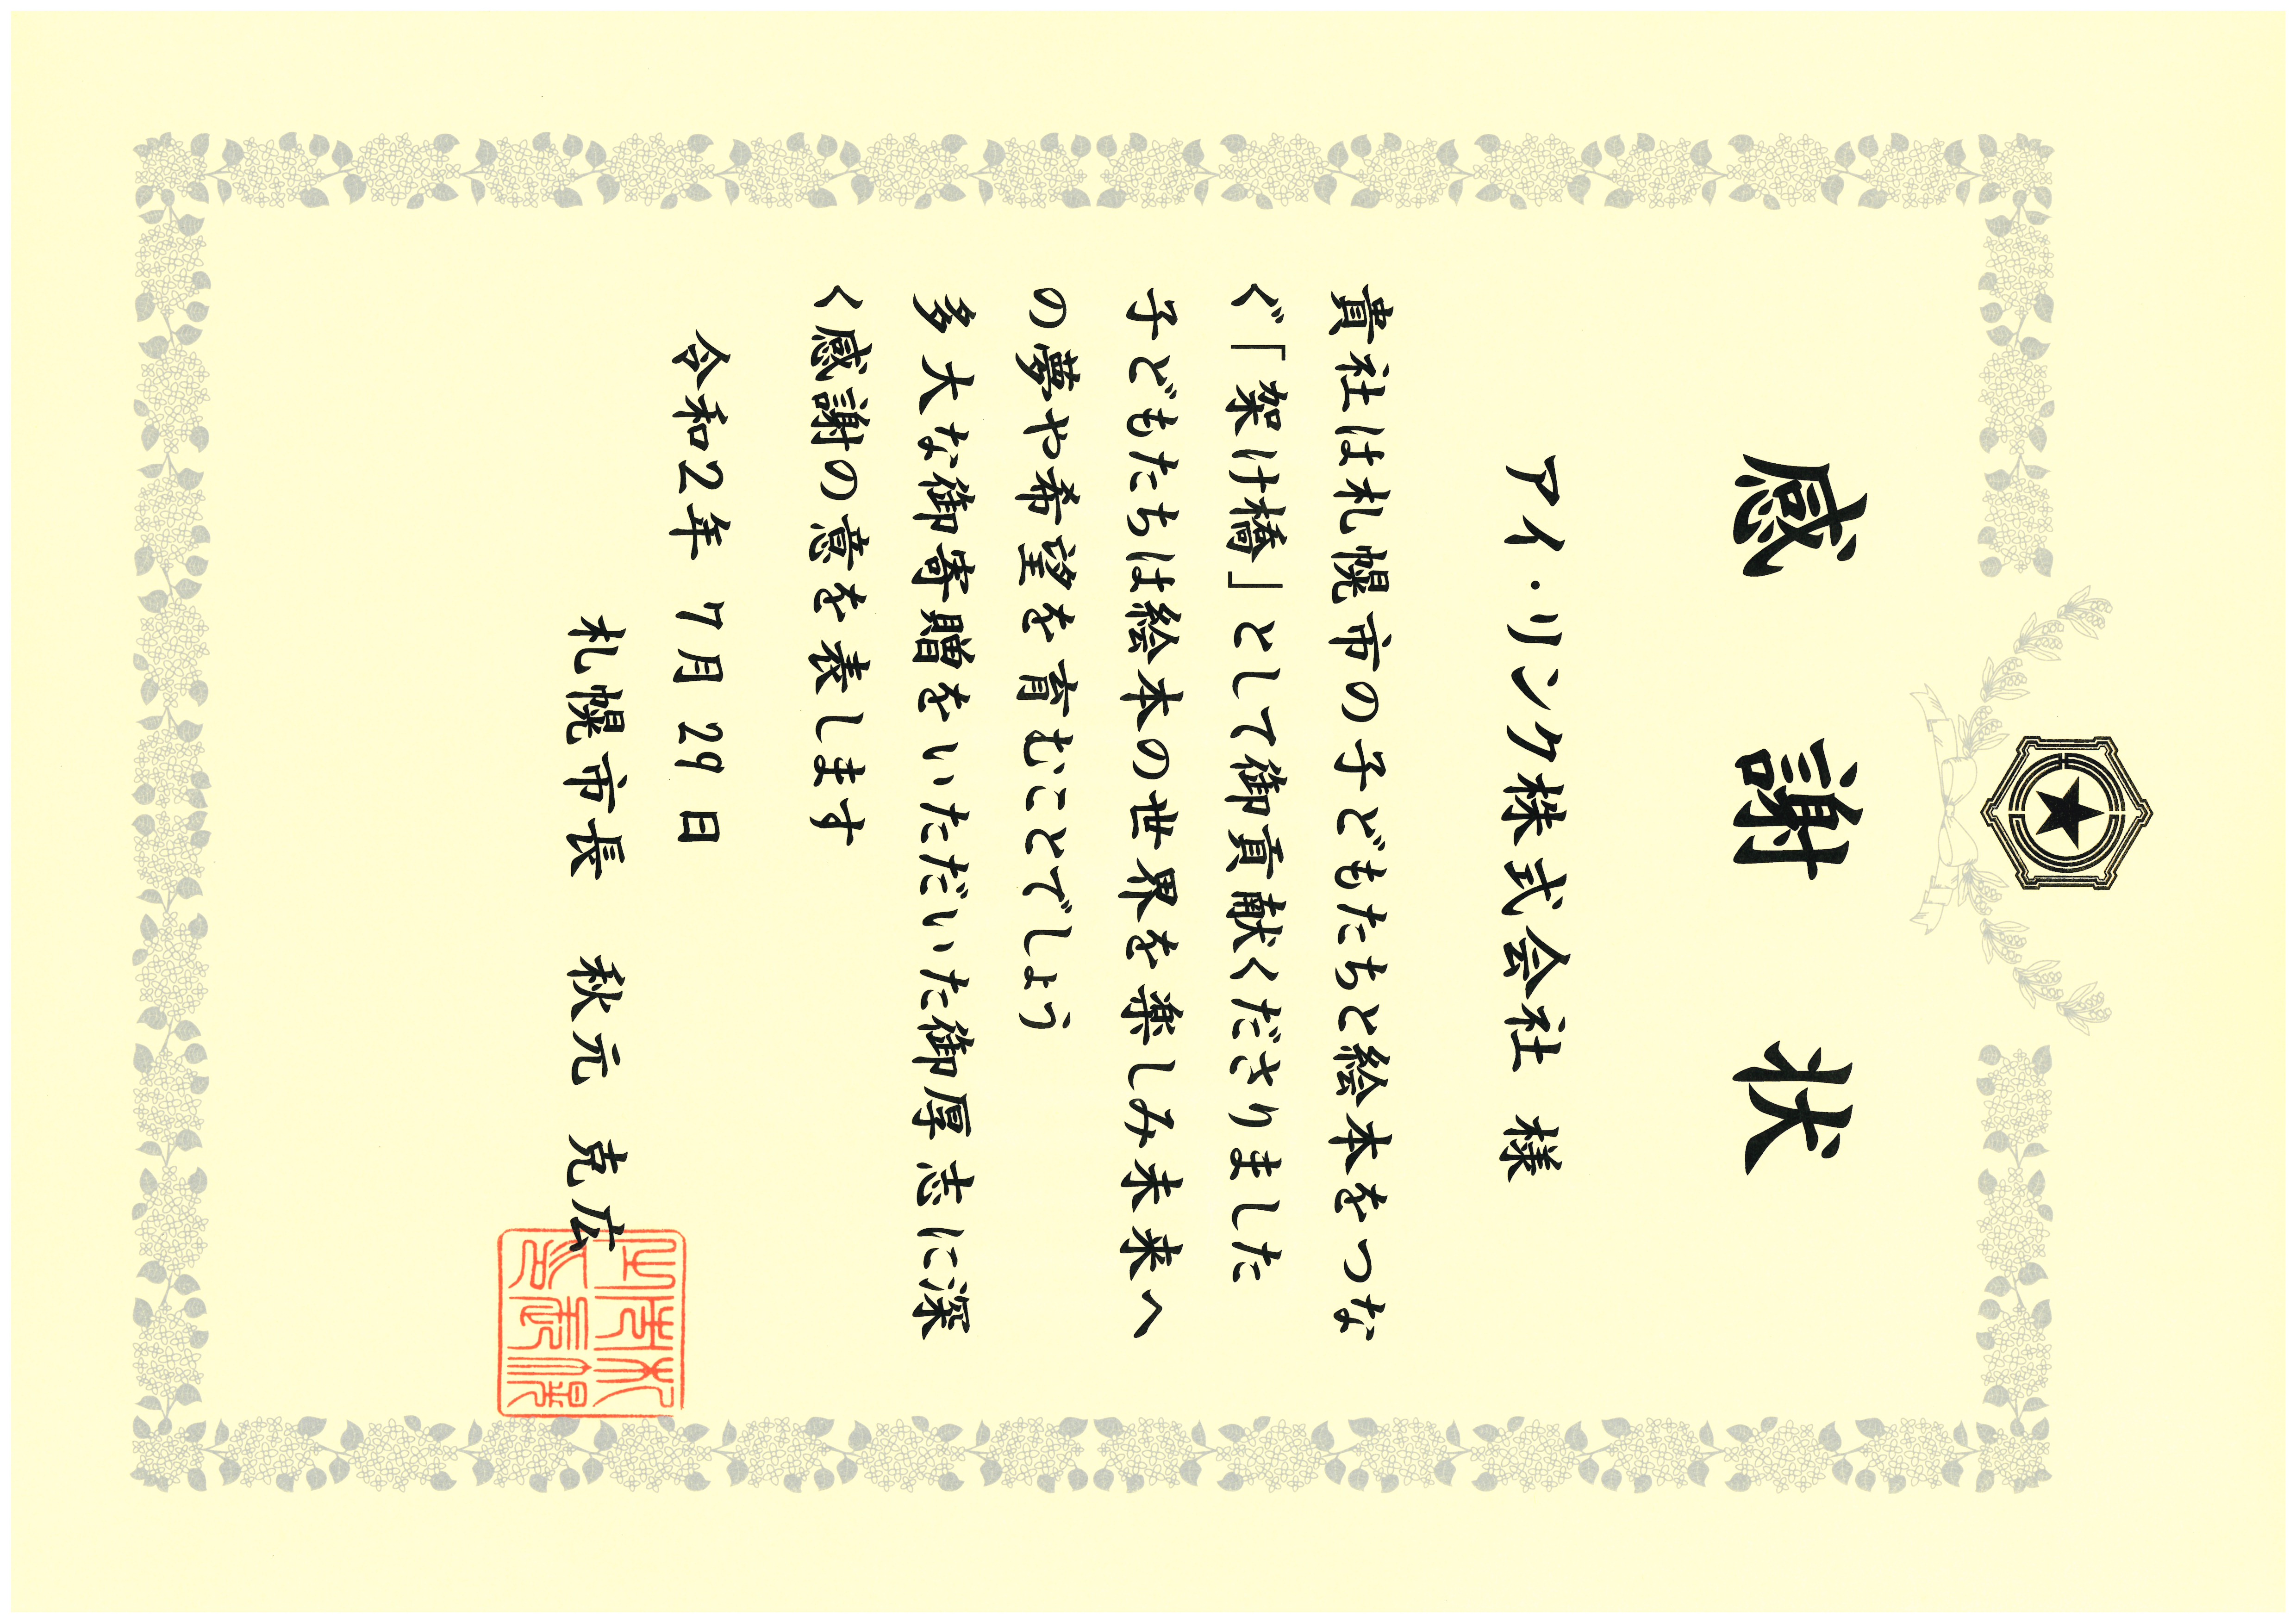 感謝状
アイ・リンク株式会社 様
貴社は札幌市の子どもたちと絵本をつな
ぐ「架け橋」として御貢献くださりました
子どもたちは絵本の世界を楽しみ未来へ
の夢や希望を育むことでしょう
多大な御寄贈をいただいた御厚志に深
く感謝の意を表します
令和2年 7月 29日
札幌市長 秋元 克広